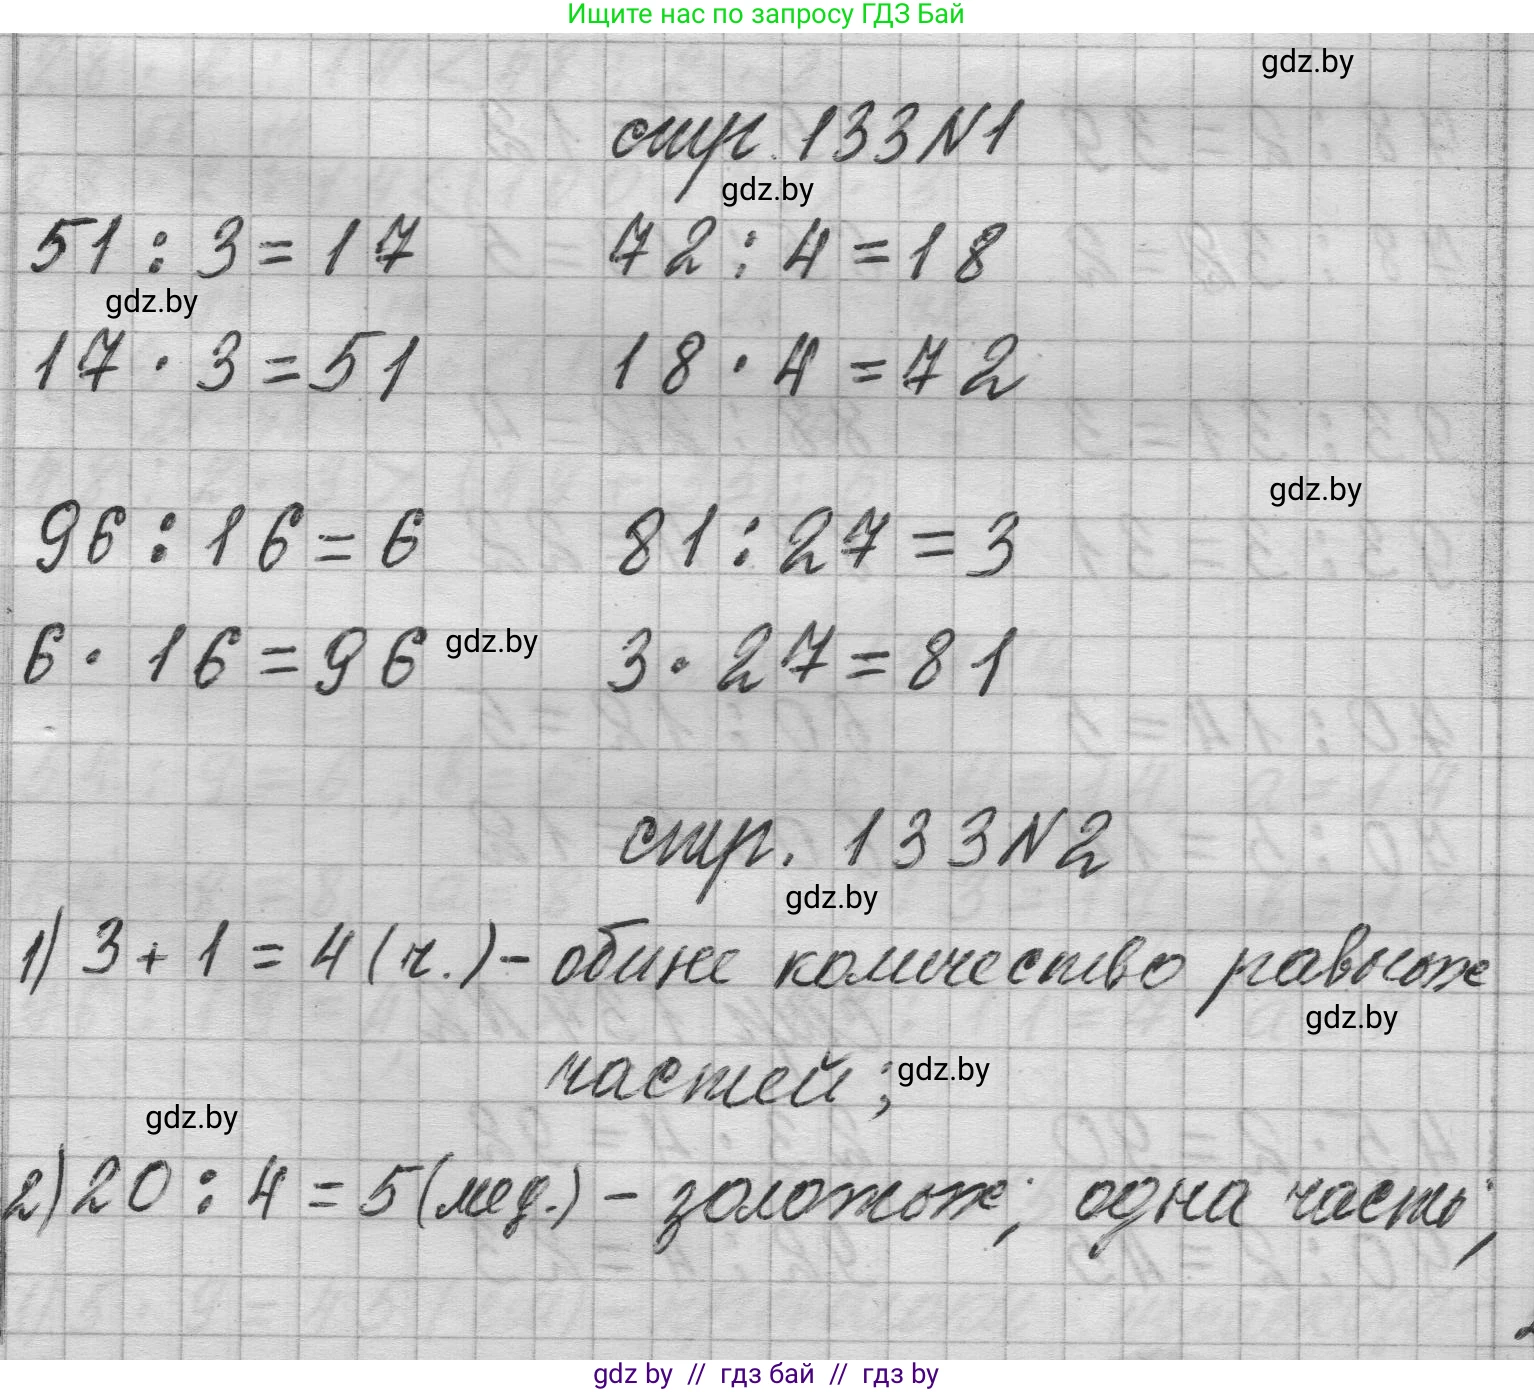 Ищите нас по запросу ГДЗ Бай
gdz.by
стр. 133 N1
gdz.by
51 : 3 = 17 72 : 4 = 18
gdz.by
17 · 3 = 51 18 · 4 = 72
gdz.by
96 : 16 = 6 81 : 27 = 3
6 · 16 = 96 gdz.by 3 · 27 = 81
стр. 133 N2
gdz.by
1) 3 + 1 = 4 (ч.) - общее количество равных
gdz.by
частей; gdz.by
gdz.by
2) 20 : 4 = 5 (мед.) - золотых; одна часть;
gdz by // гдз бай // гдз by